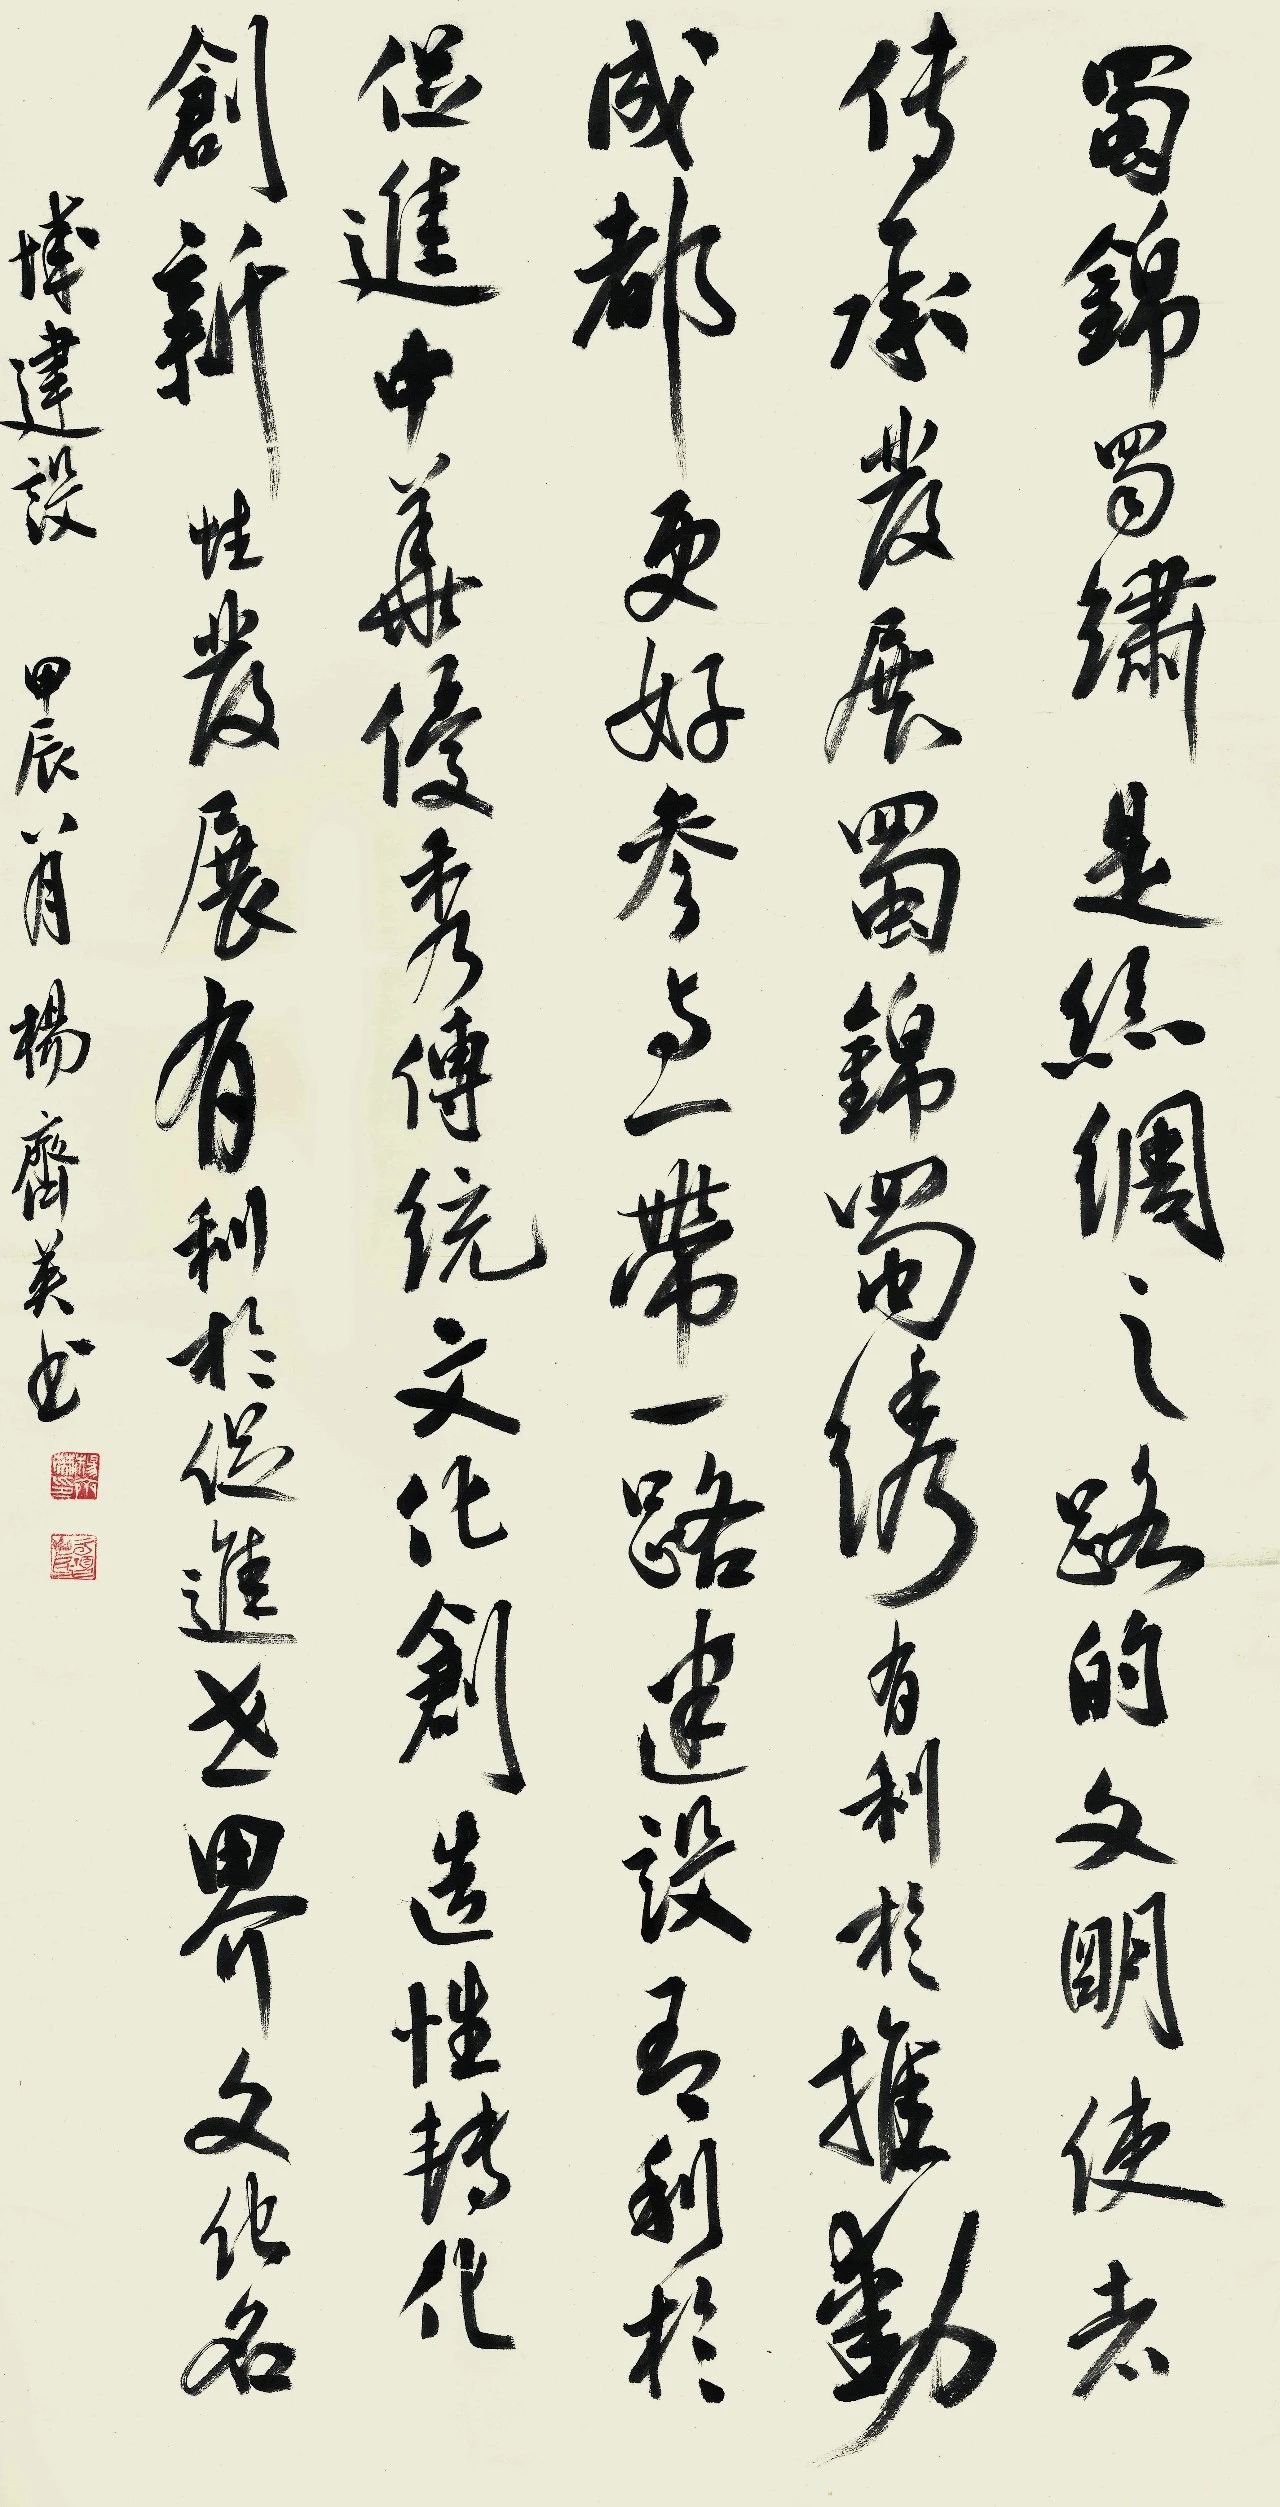 蜀錦蜀繡是絲綢之路的文明使者
传承發展蜀錦蜀绣有利於推動
成都更好参与一帶一路建設有利於
促進中華優秀傳統文化創造性轉化
創新性發展有利於促進世界文化名
城建設 甲辰八月 楊齊英书